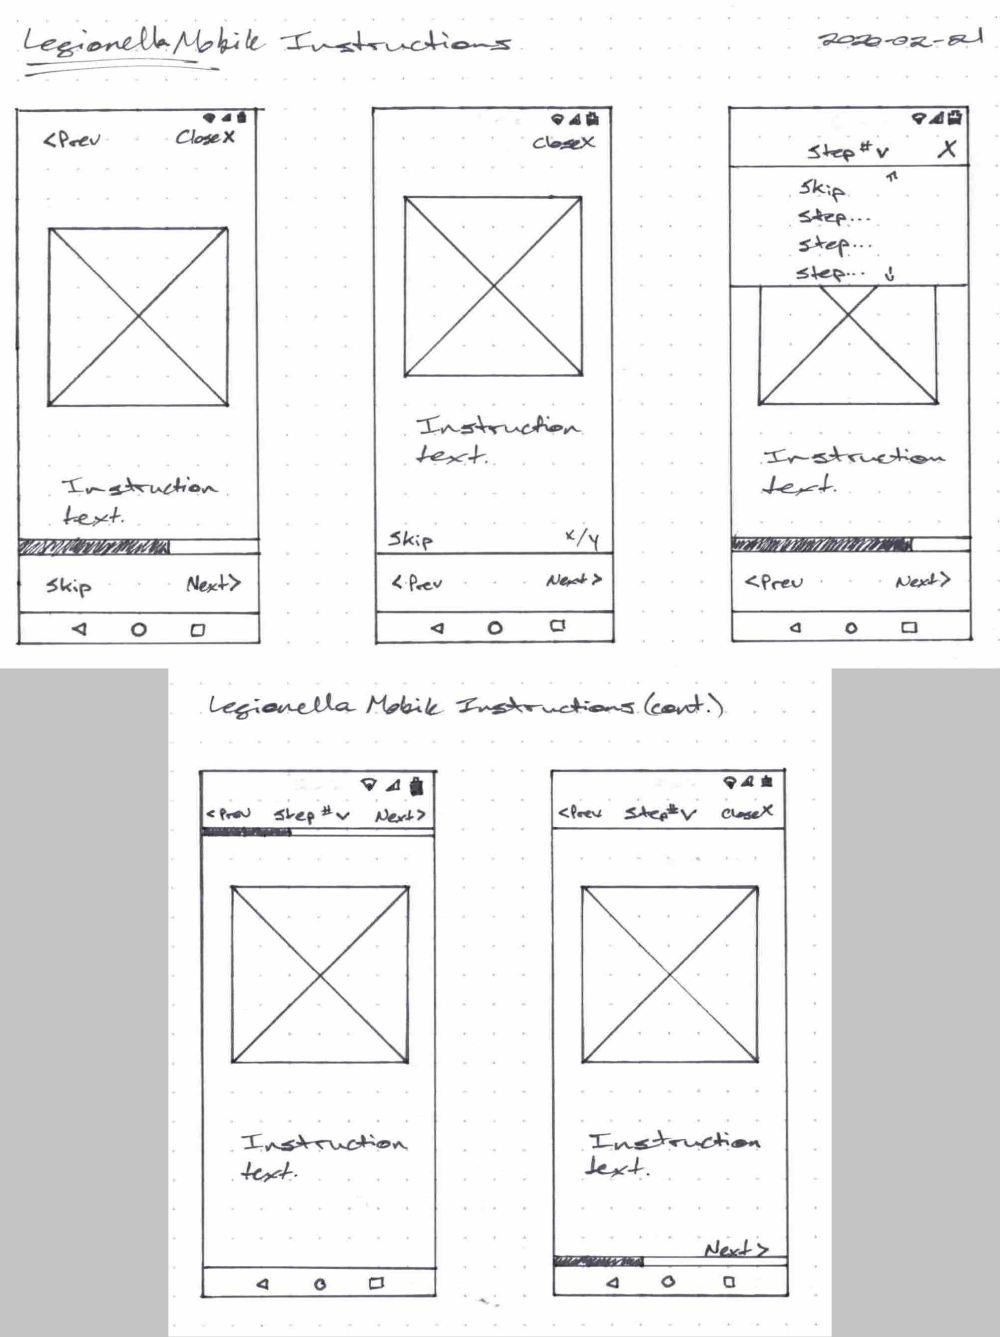 Legionella Mobile Instructions 2020-02-21
<Prev Close X
Instruction
text.
Skip Next>
Close X
Instruction
text.
Skip x/y
<Prev Next>
Step # v X
Skip
Step...
Step...
Step...
Instruction
text.
<Prev Next>
Legionella Mobile Instructions (cont.)
<Prev Step # v Next>
Instruction
text.
<Prev Step # v Close X
Instruction
text.
Next>